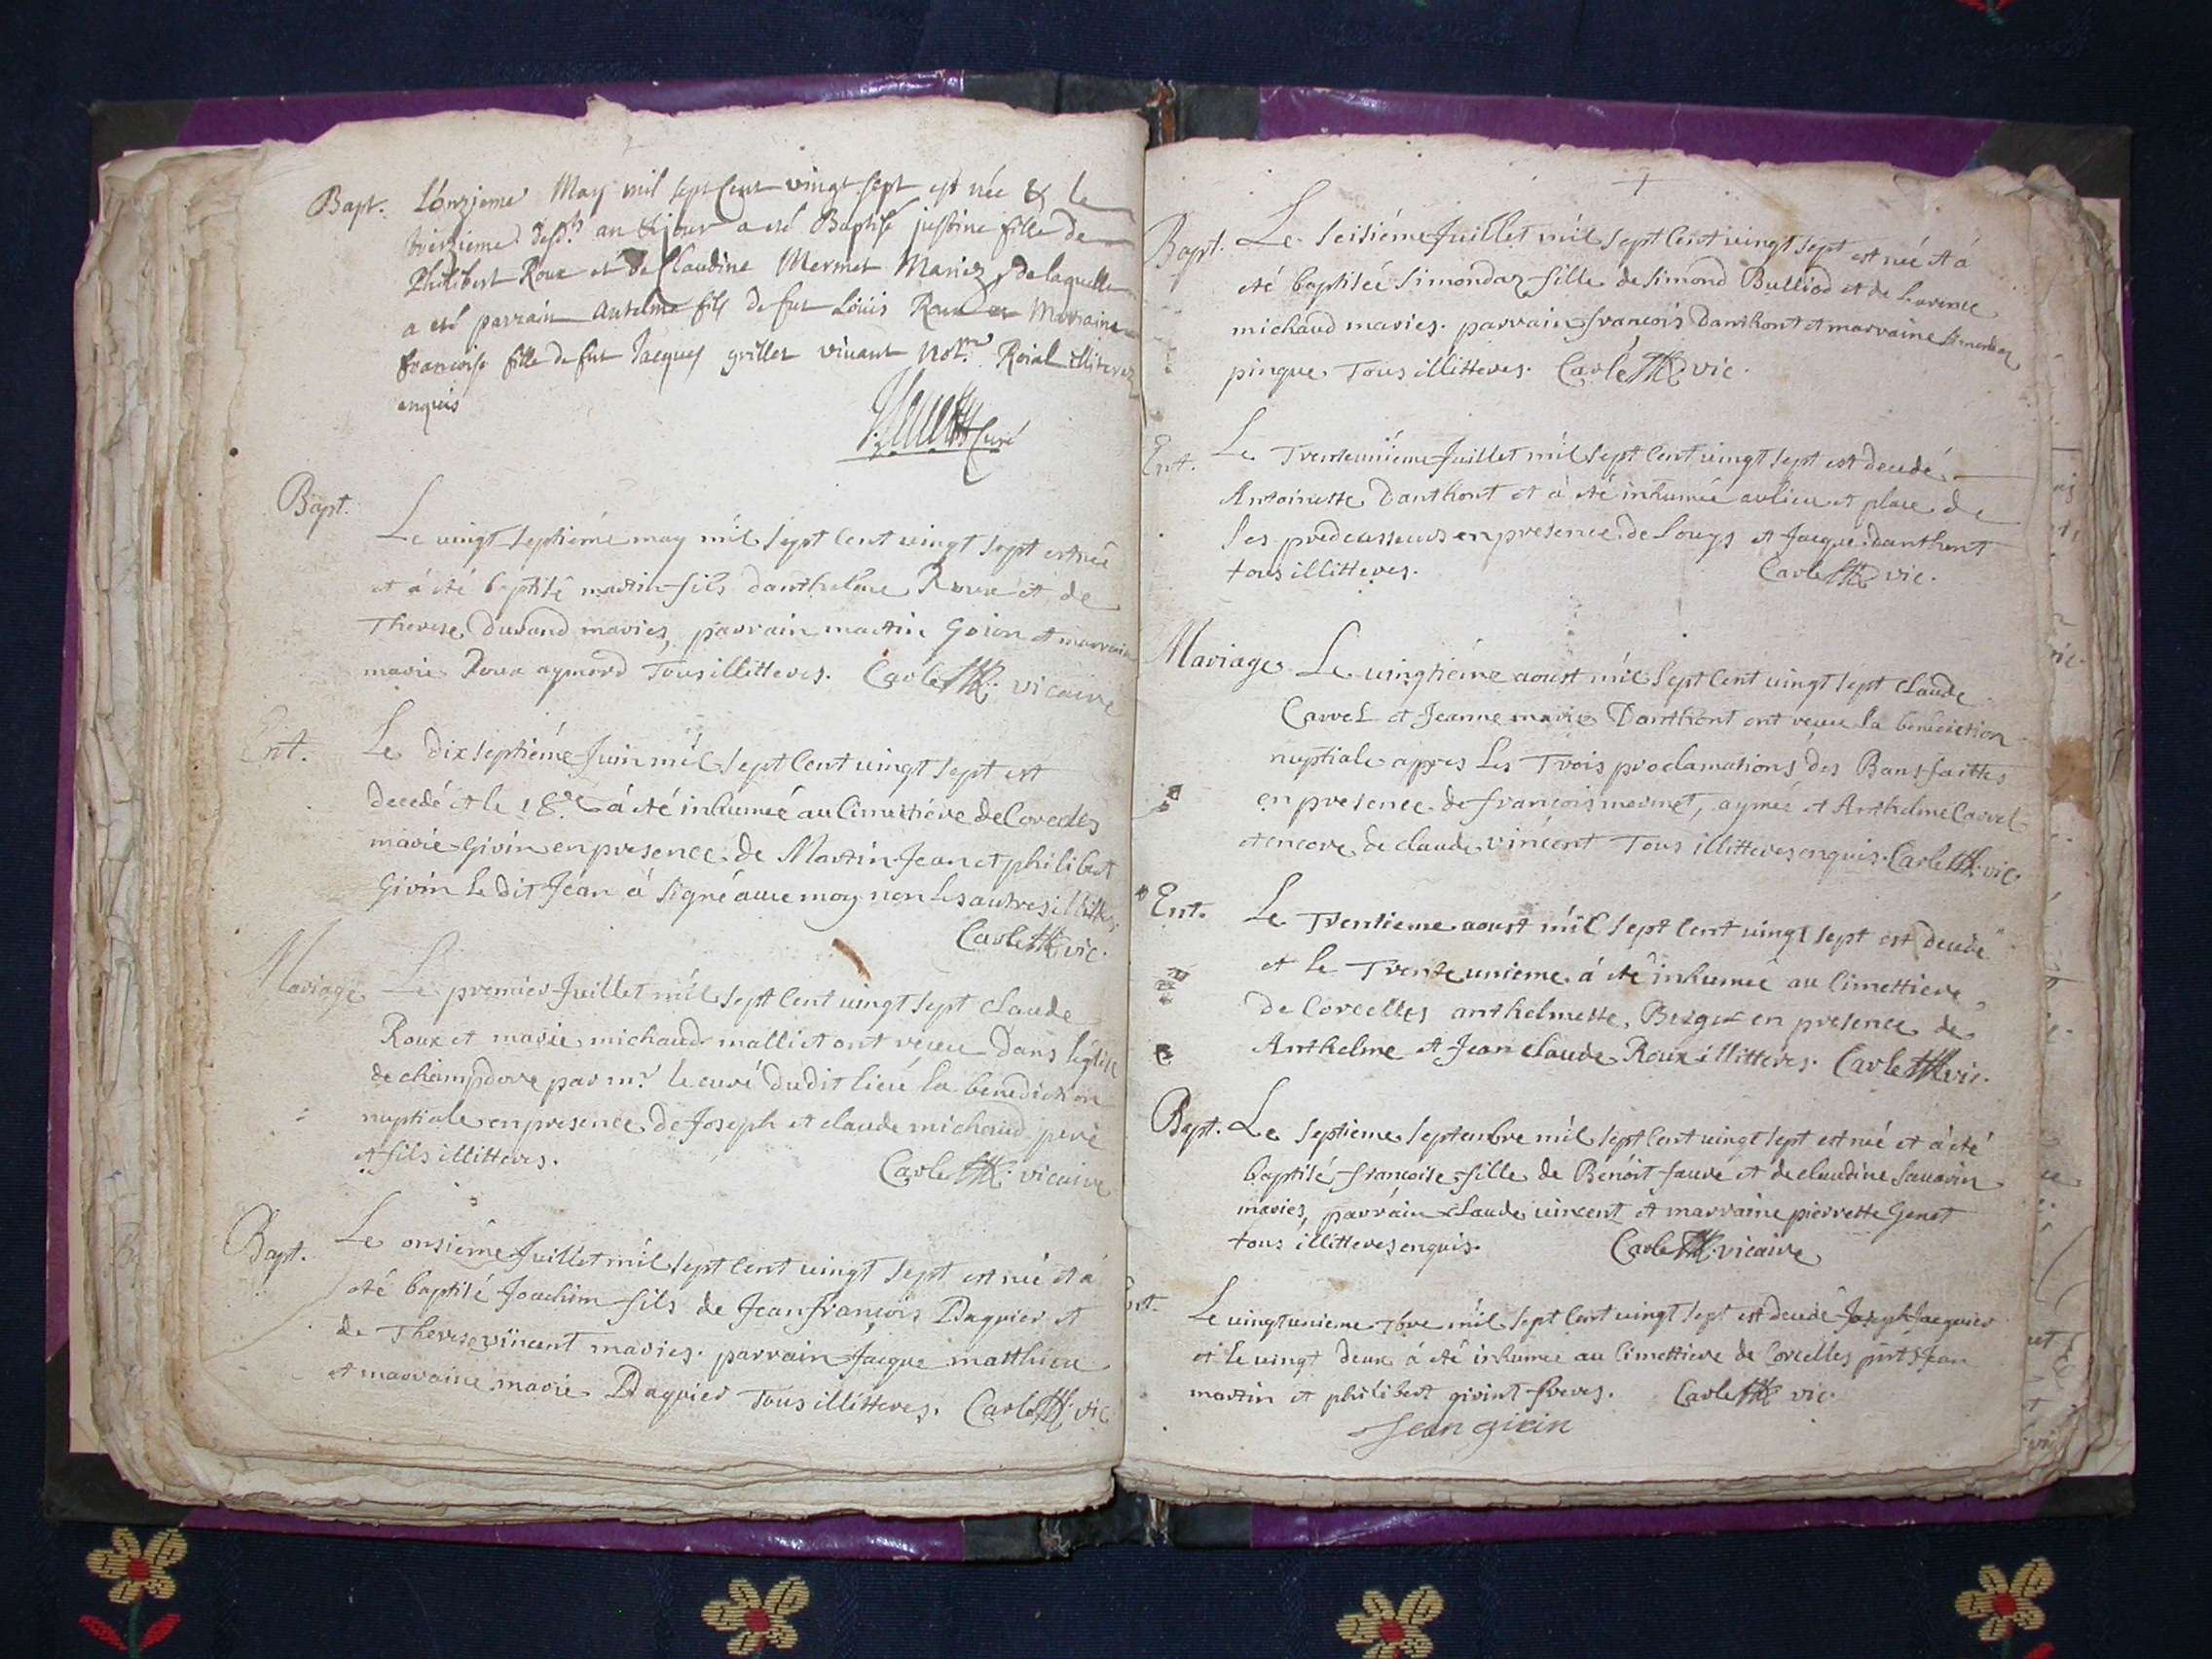 Bapt. L'onzieme May mil sept cent vingt sept est née & le
treizieme desd.ts an & jour a esté Baptisé justine fille de
Philibert Roux et de Claudine Mermet Mariez, de laquelle
a esté parrain Antelme fils de fut Loüis Roux et Marraine
francoise fille de fut Jacques grillet vivant Not.re Roial illiterez
enquis
Curé
Bapt. Le vingt septiéme may mil sept cent vingt sept est née
et á été baptisé martin fils danthelme Roux et de
Therese Durand maries, parrain martin Goion et marraine
marie Roux aymord Tous illitteres. Carle vicaire
Ent. Le dix septiéme Juin mil sept cent vingt sept est
decedé et le 18.e á été inhumeé au Cimettiére de Corcelles
marie Girin en presence de Martin Jean et philibert
Girin Le dit Jean á signé avec moy non les autres illitteres
Carle vic.
Mariage Le premier Juillet mil sept cent vingt sept claude
Roux et marie michaud malliet ont receu dans léglise
de champdore par m.r le curé dudit lieu la benediction
nuptiale en presence de Joseph et claude michaud pere
et fils illitteres. Carle vicaire
Bapt. Le onsiéme Juillet mil sept cent vingt sept est né et á
été baptisé Joachim fils de Jean francois Daguier et
de Therese vincent maries. parrain Jacque matthieu
et marraine marie Daguier Tous illitteres. Carle vic
Bapt. Le seisiéme Juillet mil sept cent vingt sept est née et á
été baptiseé Simondaz fille de Simond Bulliod et de Laurence
michaud maries. parrain francois Danthont et marraine Simondaz
pingue Tous illitteres. Carle vic.
Ent. Le Trenteuniéme Juillet mil sept cent vingt sept est decedé
Antoinette Danthont et á été inhumée au lieu et place de
ses predecesseurs en presence de Louys et Jacque danthont
tous illitteres. Carle vic.
Mariage Le vingtiéme aoust mil sept cent vingt sept claude
Carrel et Jeanne marie Danthont ont receu la benediction
nuptiale appres les Trois proclamations des Bans faittes
en presence de francois mermet, aymé et Anthelme Carrel
et encore de claude vincent Tous illitteres enquis. Carle vic.
Ent. Le Trentieme aoust mil sept cent vingt sept est decedé
et le Trente unieme á été inhumeé au Cimettiere
de Corcelles anthelmette en presence de
Anthelme et Jean claude Roux illitteres. Carle vic.
Bapt. Le septieme septembre mil sept cent vingt sept est né et á été
baptisé francoise fille de Benoit favre et de claudine Savarin
maries, parrain claude vincent et marraine pierrette Genet
tous illitteres enquis. Carle vicaire
Ent. Le vingtunieme 7bre mil sept cent vingt sept est decedé Joseph Jacquier
et le vingt deux á été inhumee au Cimettiere de Corcelles pnts Jean
martin et philibert girint freres. Carle vic.
Jean girin